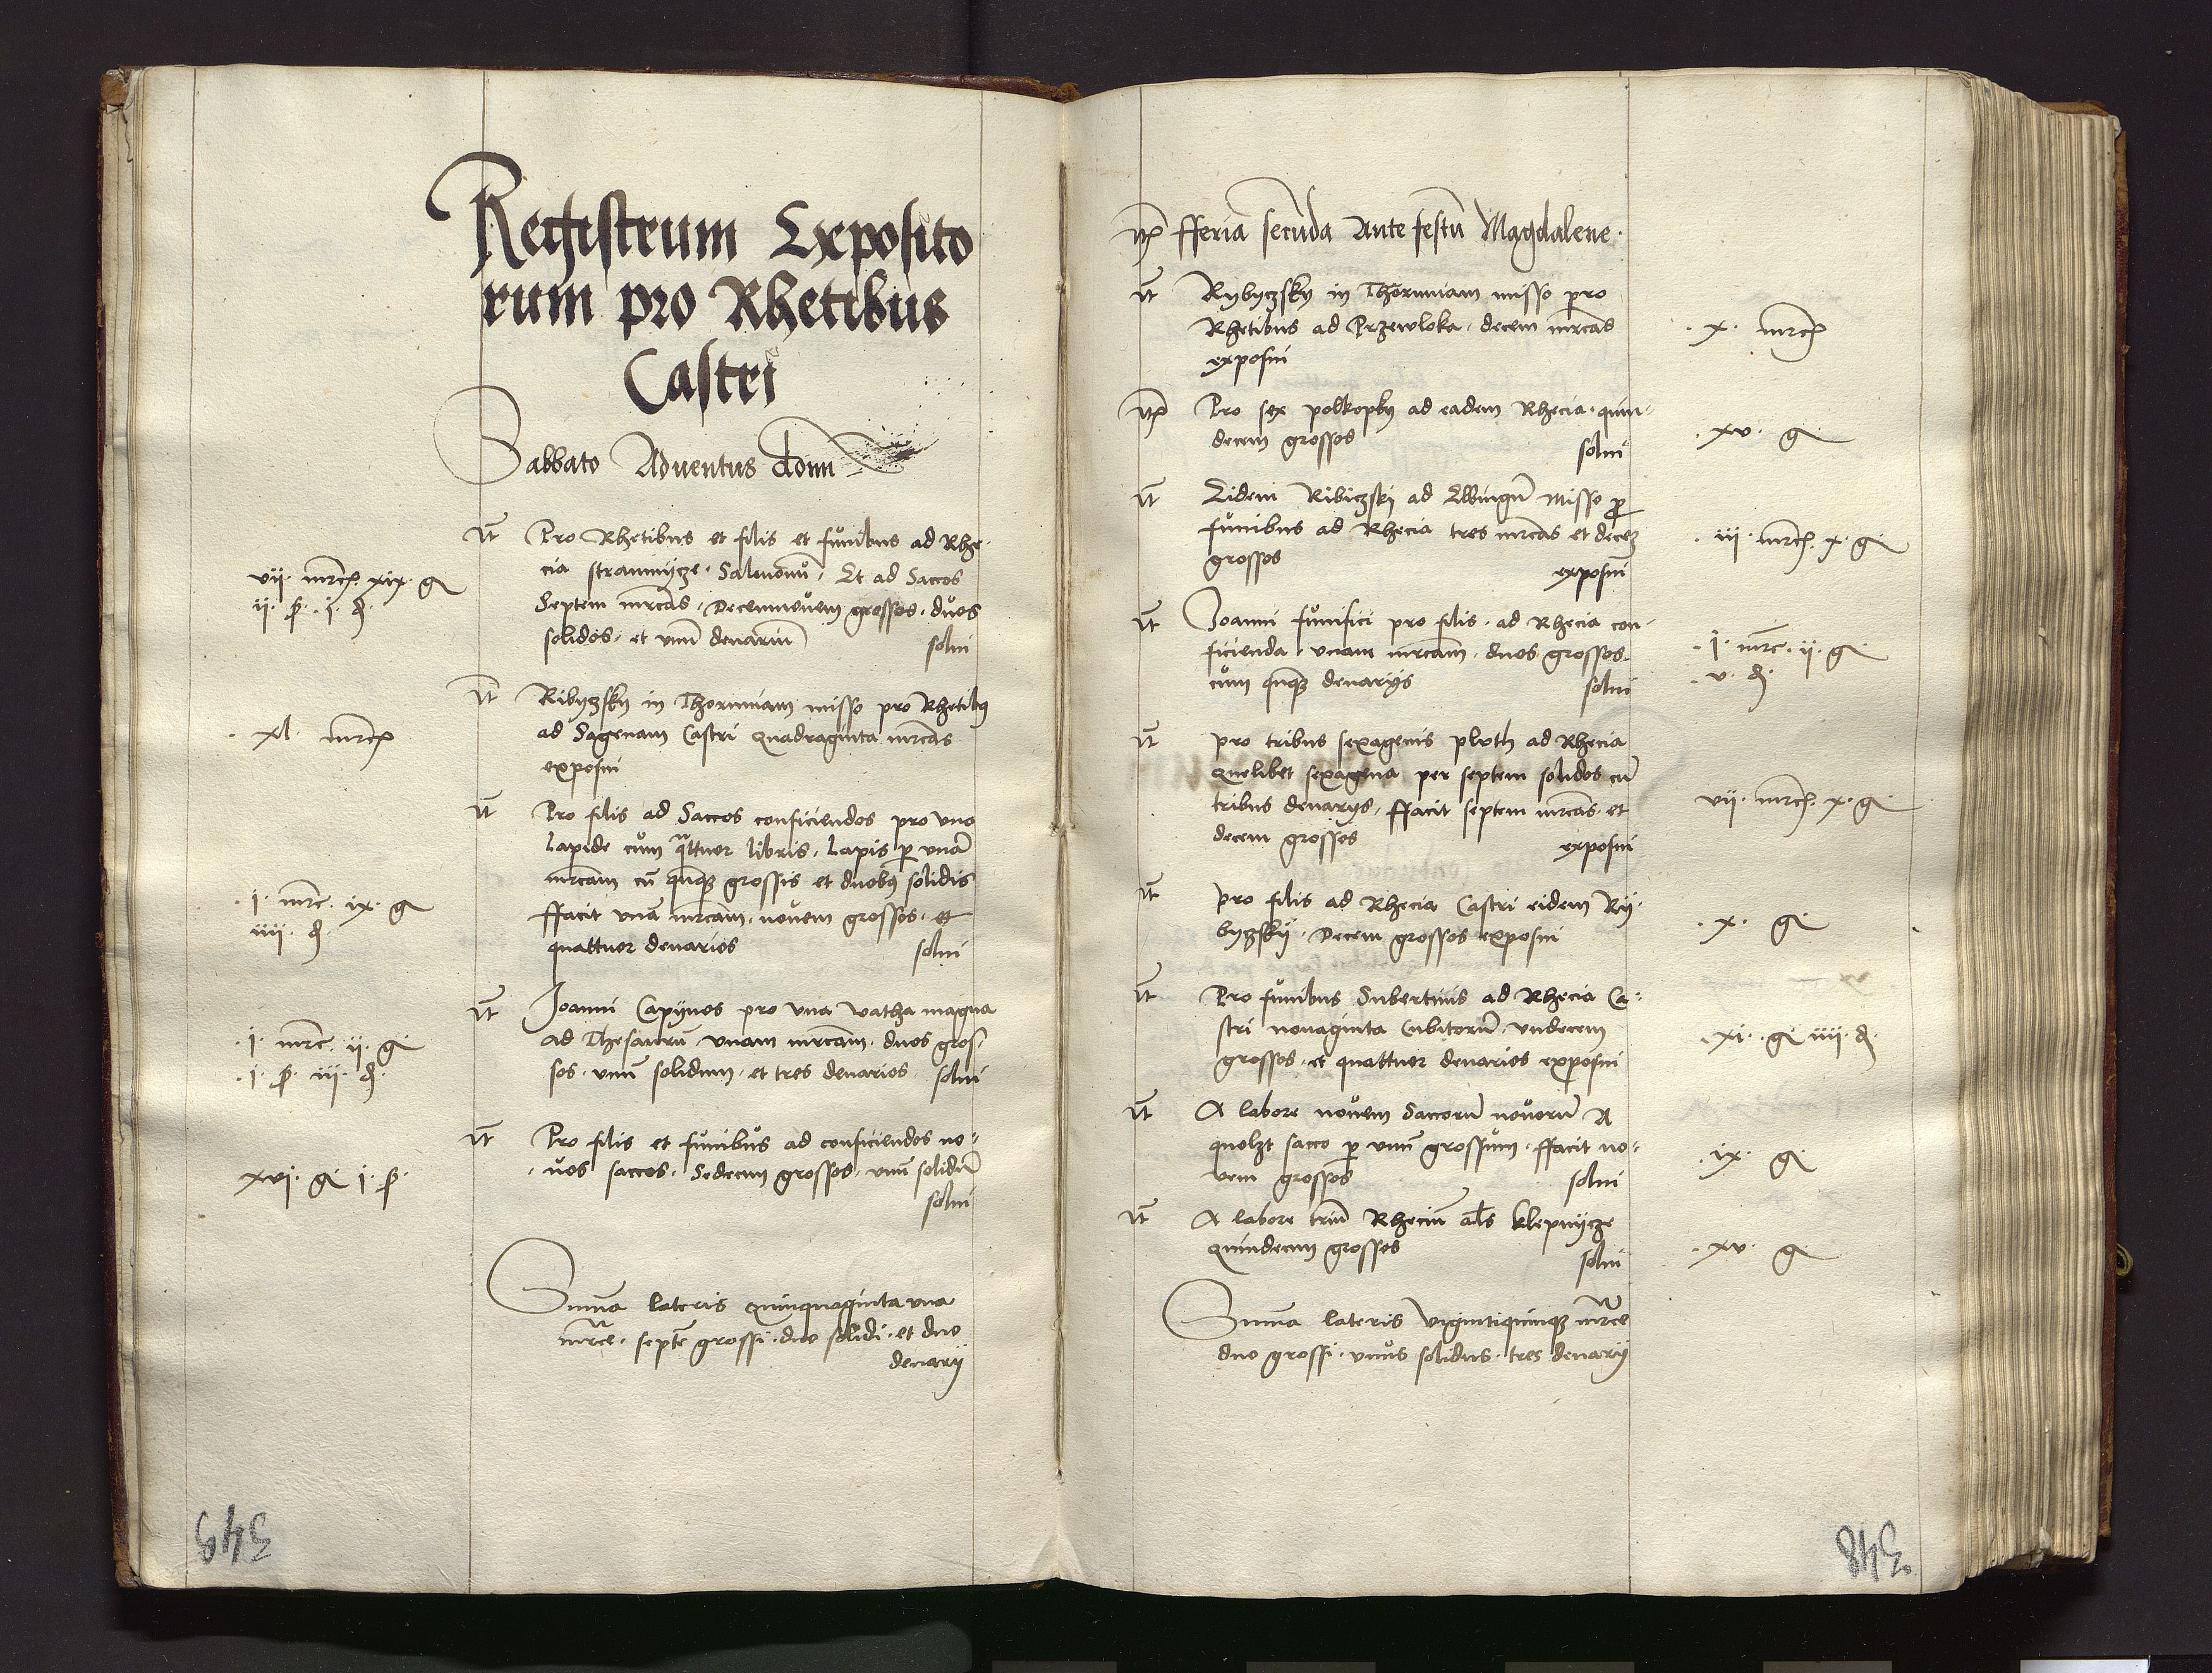 Registrum Exposito
rum pro Rhetibus
Castri
Sabbato Adventus domi
It Pro Rhetibus et filis et funibus ad Rhe
cia stramnycze Salmonu Et ad Saccos
vii mrc xix g
Septem mrcas Decemnovem grossos duos
ii s i d
solidos et unu denariu solui
It Ribyczsky in Thorunniam misso pro Rhetibus
ad Sagenam Castri quadraginta mrcas
xl mrc
exposui
It Pro filis ad Saccos conficiendos pro uno
lapide cum quattuor libris lapis p una
mrcam cu quinque grossis et duobus solidis
i mrc ix g
ffacit una mrcam novem grossos et
iiii d
quattuor denarios solui
It Joanni Capynos pro una watha magna
ad Thesauru unam mrcam duos gros
i mrc ii g
sos unu solidum et tres denarios solui
i s iii d
It Pro filis et funibus ad conficiendos no-
vos saccos Sedecim grossos unu solidu
xvi g i s
solui
Summa lateris quinquaginta una
mrce septe grossi duo solidi et duo
denarij
349
It fferia secunda Ante festu Magdalene
It Rybyczsky in Thorunniam misso pro
Rhetibus ad Przewloka decem mrcas
x mrc
exposui
It Pro sex polkopky ad eadem Rhecia quin-
decem grossos solui
xv g
It Eidem Ribiczski ad Elbingu misso pro
funibus ad Rhecia tres mrcas et decem
iii mrc x g
grossos exposui
It Joanni funifici pro filis ad Rhecia con-
ficienda unam mrcam duos grossos
i mrc ii g
cum quinque denarijs solui
v d
It pro tribus sexagenis ploth ad Rhecia
quelibet sexagena per septem solidos cu
tribus denarijs ffacit septem mrcas et
vii mrc x g
decem grossos exposui
It pro filis ad Rhecia Castri eidem Ry-
byzsky Decem grossos exposui
x g
It Pro funibus Subertinis ad Rhecia Ca-
stri nonaginta Cubitoru undecem
xi g iiii d
grossos et quattuor denarios exposui
It A labore novem Saccoru novoru A
quolzt sacco p unu grossum ffacit no-
ix g
vem grossos solui
It A labore triu Rheciu als klepnycze
quindecim grossos solui
xv g
Summa lateris Vigintiquinque mrce
duo grossi unus solidus tres denarij
348